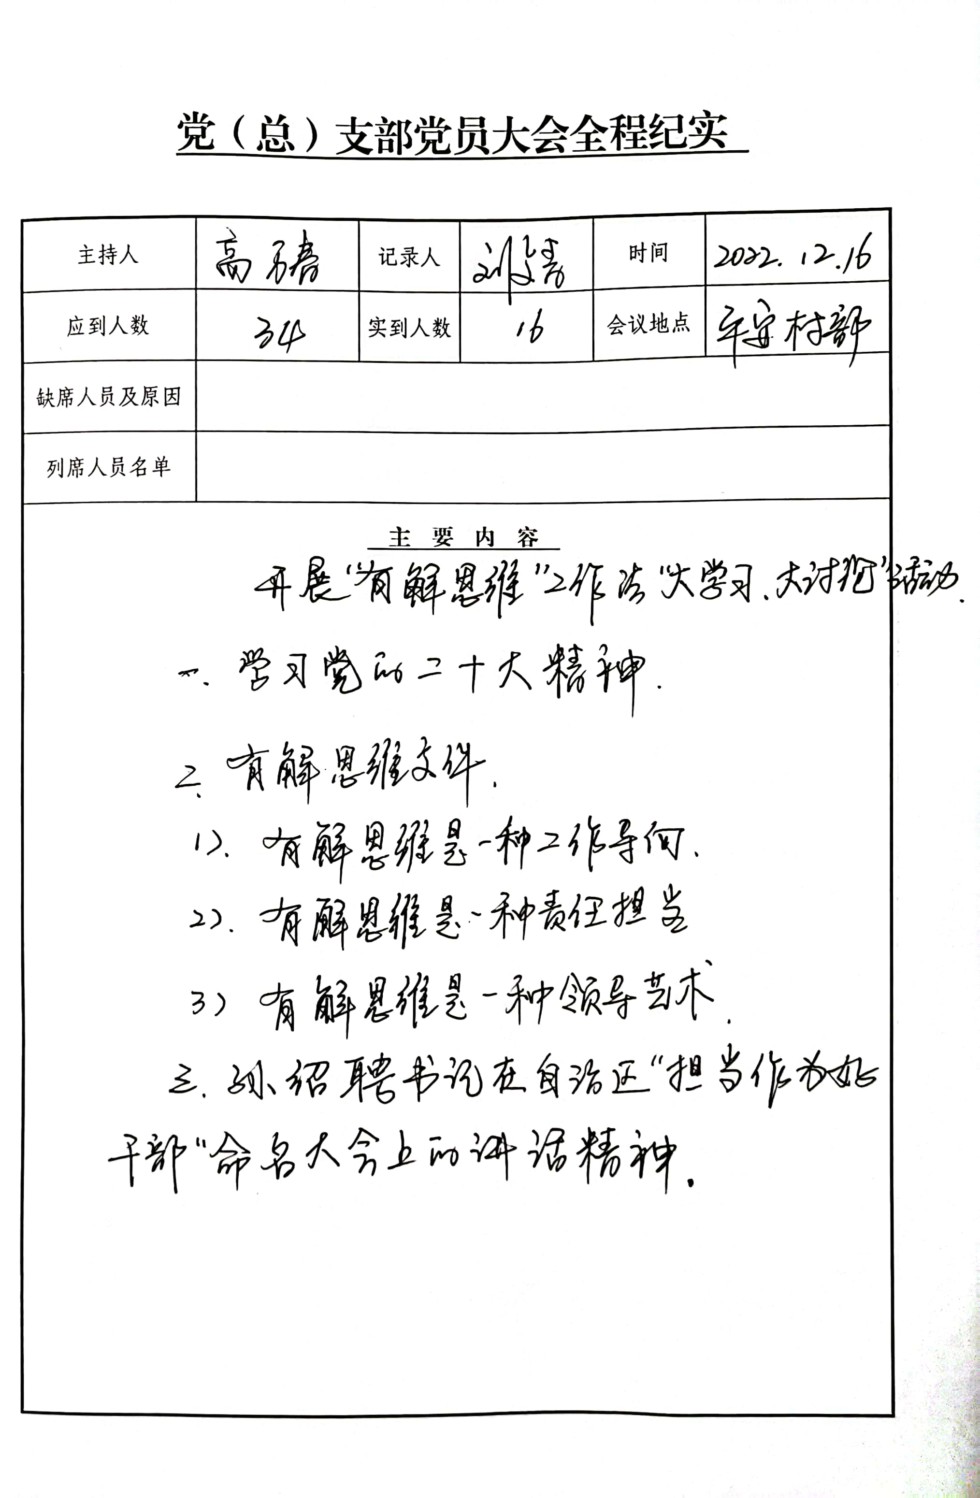 党（总）支部党员大会全程纪实
主持人 高 春 记录人 刘 时间 2022.12.16
应到人数 34 实到人数 16 会议地点 平安村部
缺席人员及原因
列席人员名单
主要内容
开展“有解思维”工作法“大学习、大讨论”活动.
一、学习党的二十大精神.
二、有解思维文件.
1）. 有解思维是一种工作导向.
2）. 有解思维是一种责任担当
3） 有解思维是一种领导艺术.
三. 孙绍骋书记在自治区“担当作为好
干部”命名大会上的讲话精神.